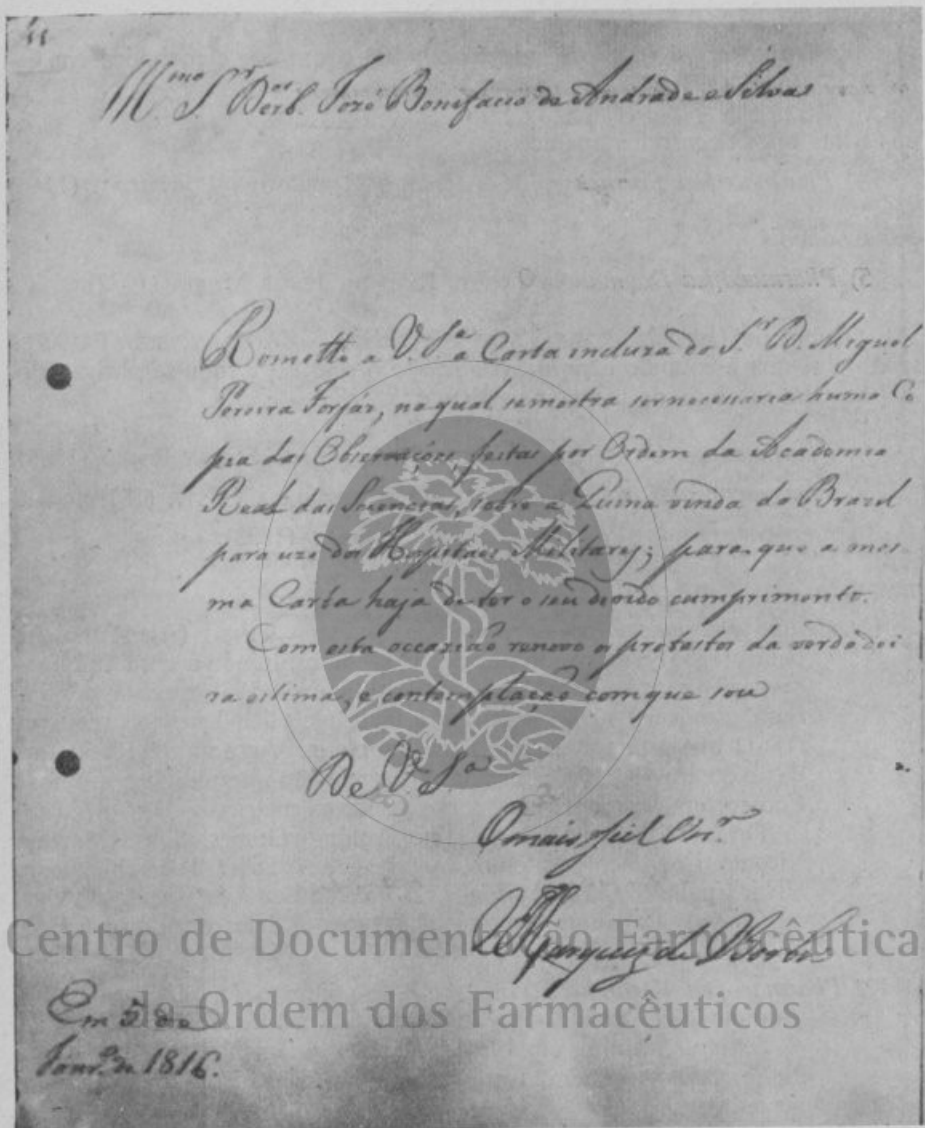 11
Ill.mo S.r Dez.or Joze Bonifacio de Andrade e Silva
Remetto a V. S.a a Carta incluza do S.r D. Miguel
Pereira Forjáz, na qual se mostra ser necessaria huma Co
pia das Observações feitas por Ordem da Academia
Real das Sciencias, sobre a Quina vinda do Brazil
para uzo dos Hospitaes Militares; para que a mes-
ma Carta haja de ter o seu devido cumprimento.
Com esta occazião renovo os protestos da verdadei
ra estima, e contemplação com que sou
De V. S.a
O mais fiel
Marquez de Borba
Em 5 de
Janr.o de 1816.
Centro de Documentação Farmacêutica
da Ordem dos Farmacêuticos